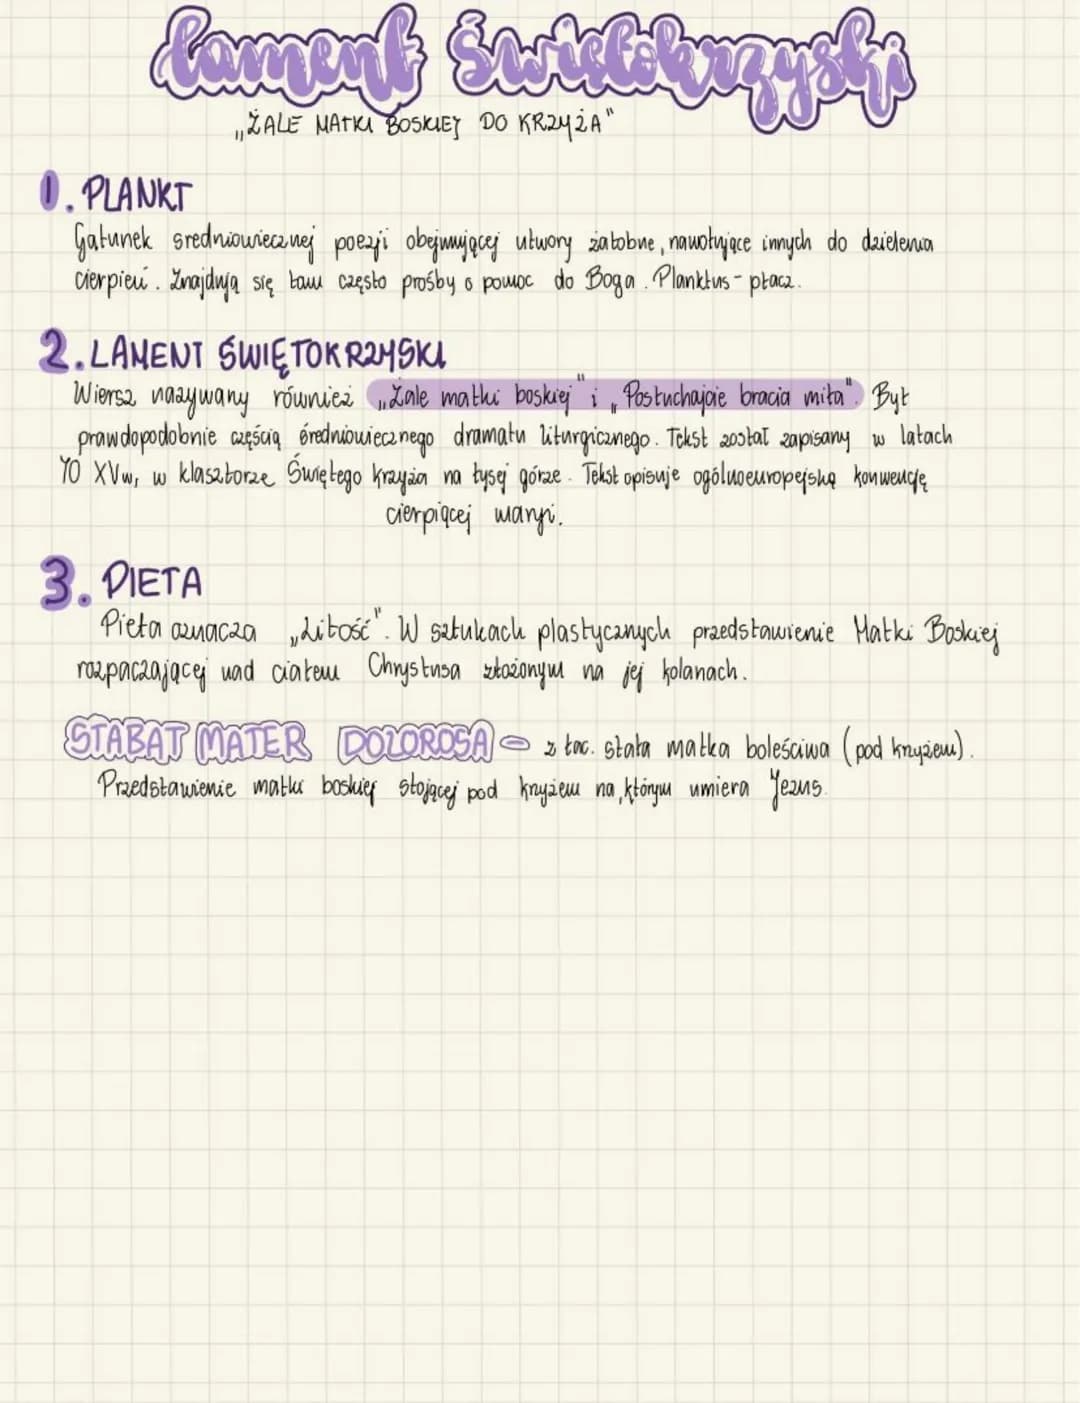 Lament Świętokrzyski
„ŻALE MATKI BOSKIEJ DO KRZYŻA"
1. PLANKT
Gatunek średniowiecznej poezji obejmującej utwory żałobne, nawołujące innych do dzielenia
cierpień. Znajdują się tam często prośby o pomoc do Boga. Planktus - płacz.
2. LAMENT ŚWIĘTOKRZYSKI
Wiersz nazywany również „Żale matki boskiej" i „Posłuchajcie bracia miła". Był
prawdopodobnie częścią średniowiecznego dramatu liturgicznego. Tekst został zapisany w latach
70 XVw, w klasztorze Świętego krzyża na łysej górze. Tekst opisuje ogólnoeuropejską konwencję
cierpiącej maryi.
3. PIETA
Pieta oznacza „Litość". W sztukach plastycznych przedstawienie Matki Boskiej
rozpaczającej nad ciałem Chrystusa złożonym na jej kolanach.
STABAT MATER DOLOROSA - z łac. stała matka boleściwa (pod krzyżem).
Przedstawienie matki boskiej stojącej pod krzyżem na, którym umiera Jezus.